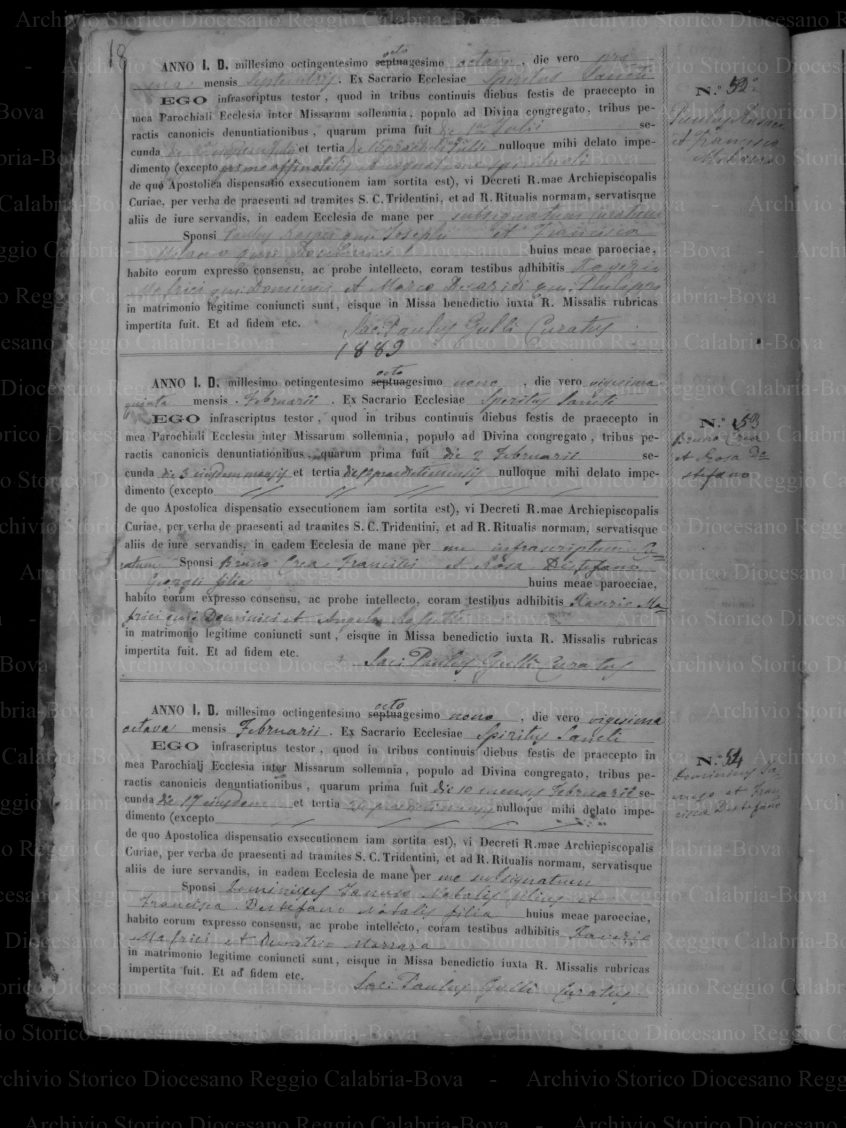 18
ANNO I. D. millesimo octingentesimo septuagesimo octo octavo, die vero
mensis Septembris. Ex Sacrario Ecclesiae Spiritus Sancti
EGO infrascriptus testor, quod in tribus continuis diebus festis de praecepto in
mea Parochiali Ecclesia inter Missarum sollemnia, populo ad Divina congregato, tribus pe-
ractis canonicis denuntiationibus, quarum prima fuit die Julii se-
cunda die et tertia die nulloque mihi delato impe-
dimento (excepto
de quo Apostolica dispensatio exsecutionem iam sortita est), vi Decreti R.mae Archiepiscopalis
Curiae, per verba de praesenti ad tramites S. C. Tridentini, et ad R. Ritualis normam, servatisque
aliis de iure servandis, in eadem Ecclesia de mane per subsignatum Curatum
Sponsi Pauly qm Josephi et Francisca
Milano qm huius meae paroeciae,
habito eorum expresso consensu, ac probe intellecto, coram testibus adhibitis Xaverio
Mafrici qm Dominici et Marco qm
in matrimonio legitime coniuncti sunt, eisque in Missa benedictio iuxta R. Missalis rubricas
impertita fuit. Et ad fidem etc. Sac. Paulus Gulli Curatus
N.° 52
Pauly
et Francisca
Milano
1889
ANNO I. D. millesimo octingentesimo septuagesimo octo nono, die vero vigesima
quinta mensis Februarii. Ex Sacrario Ecclesiae Spiritus Sancti
EGO infrascriptus testor, quod in tribus continuis diebus festis de praecepto in
mea Parochiali Ecclesia inter Missarum sollemnia, populo ad Divina congregato, tribus pe-
ractis canonicis denuntiationibus, quarum prima fuit die 2 Februarii se-
cunda die 3 eiusdem mensis et tertia die praedicti mensis nulloque mihi delato impe-
dimento (excepto
de quo Apostolica dispensatio exsecutionem iam sortita est), vi Decreti R.mae Archiepiscopalis
Curiae, per verba de praesenti ad tramites S. C. Tridentini, et ad R. Ritualis normam, servatisque
aliis de iure servandis, in eadem Ecclesia de mane per me infrascriptum Cu=
ratum Sponsi Bruno Crea Francisci et Rosa Destefano
Giorgii filia huius meae paroeciae,
habito eorum expresso consensu, ac probe intellecto, coram testibus adhibitis Xaverio Ma=
frici qm Dominici et Angelo
in matrimonio legitime coniuncti sunt, eisque in Missa benedictio iuxta R. Missalis rubricas
impertita fuit. Et ad fidem etc. Sac: Paulus Gulli Curatus
N.° 53
Bruno Crea
et Rosa De
stefano
ANNO I. D. millesimo octingentesimo septuagesimo octo nono, die vero vigesima
octava mensis Februarii. Ex Sacrario Ecclesiae Spiritus Sancti
EGO infrascriptus testor, quod in tribus continuis diebus festis de praecepto in
mea Parochiali Ecclesia inter Missarum sollemnia, populo ad Divina congregato, tribus pe-
ractis canonicis denuntiationibus, quarum prima fuit die 10 mensis Februarii se-
cunda die 17 eiusdem et tertia 24 praedicti mensis nulloque mihi delato impe-
dimento (excepto
de quo Apostolica dispensatio exsecutionem iam sortita est), vi Decreti R.mae Archiepiscopalis
Curiae, per verba de praesenti ad tramites S. C. Tridentini, et ad R. Ritualis normam, servatisque
aliis de iure servandis, in eadem Ecclesia de mane per me subsignatum
Sponsi Dominicus Natalis filius et
Francisca Destefano Natalis filia huius meae paroeciae,
habito eorum expresso consensu, ac probe intellecto, coram testibus adhibitis Xaverio
Mafrici et Marrara
in matrimonio legitime coniuncti sunt, eisque in Missa benedictio iuxta R. Missalis rubricas
impertita fuit. Et ad fidem etc. Sac: Paulus Gulli Curatus
N.° 54
Dominicus
et Fran
cisca Destefano
Archivio Storico Diocesano Reggio Calabria-Bova